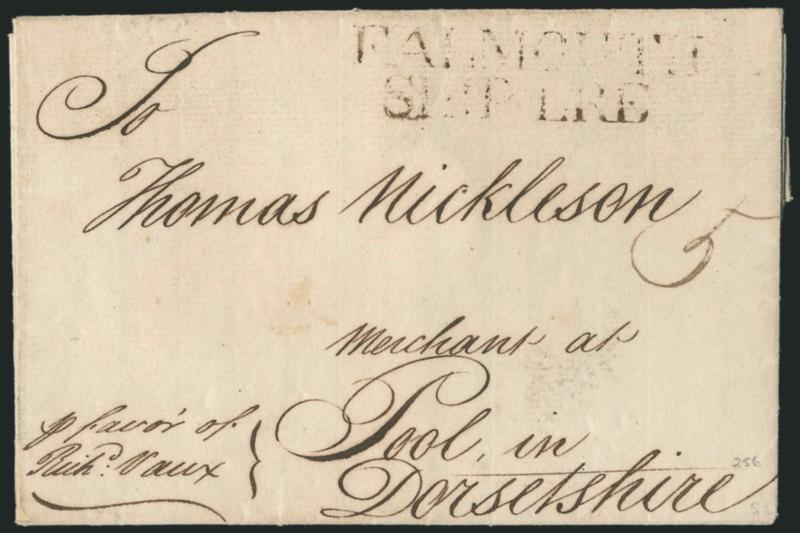 FALMOUTH
SHIP LRE
To
Thomas Nickleson
5
Merchant at
Pool, in
Dorsetshire
p favor of
Richd. Vaux
256